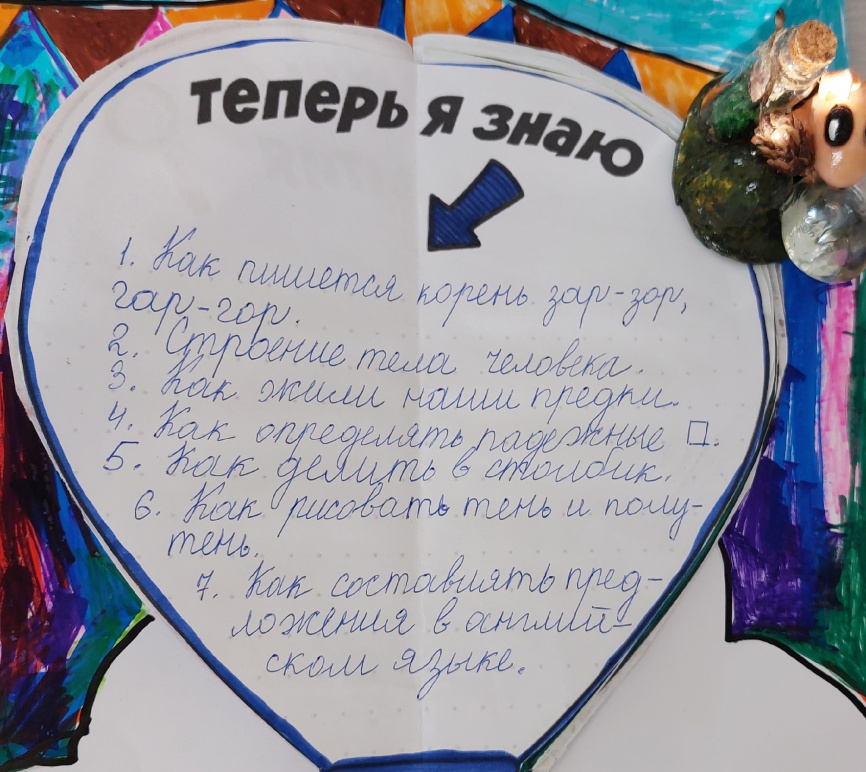 теперь я знаю
1. Как пишется корень зар-зор,
гар-гор.
2. Строение тела человека.
3. Как жили наши предки.
4. Как определять падежные □.
5. Как делить в столбик.
6. Как рисовать тень и полу-
тень.
7. Как составлять пред-
ложения в англий-
ском языке.